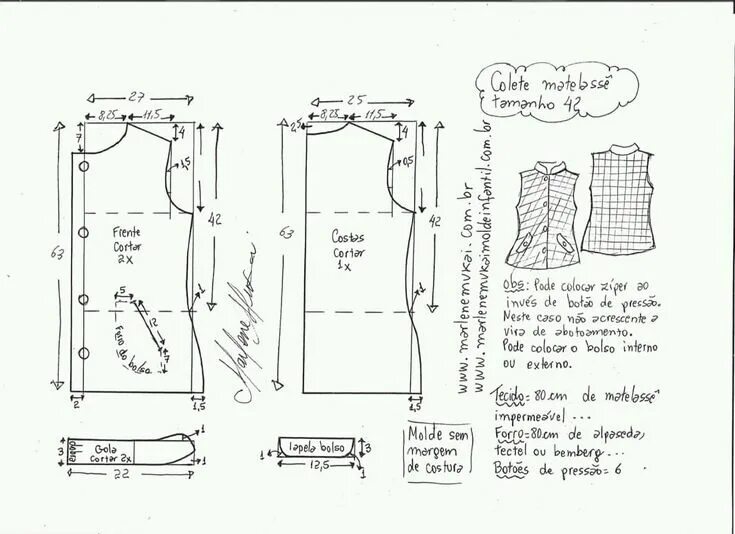 Colete matelassê
tamanho 42
27
8,25 11,5
7
4
1,5
63
42
Frente
Cortar
2x
5
12
7
Forro do
bolso
1
2
1,5
25
8,25 11,5
2,5
4
0,5
63
42
Costas
Cortar
1x
1
1,5
Marlene Mukai
www.marlenemukai.com.br
www.marlenemukaimoldeinfantil.com.br
Obs: Pode colocar zíper ao
invés de botão de pressão.
Neste caso não acrescente a
vira de abotoamento.
Pode colocar o bolso interno
ou externo.
Tecido= 80 cm de matelassê
impermeável ...
Forro= 80cm de alpaseda,
tectel ou bemberg...
Botões de pressão= 6
3
Gola
Cortar 2x
1
1
22
lapela bolso
3
12,5
1
1
Molde sem
margem
de costura